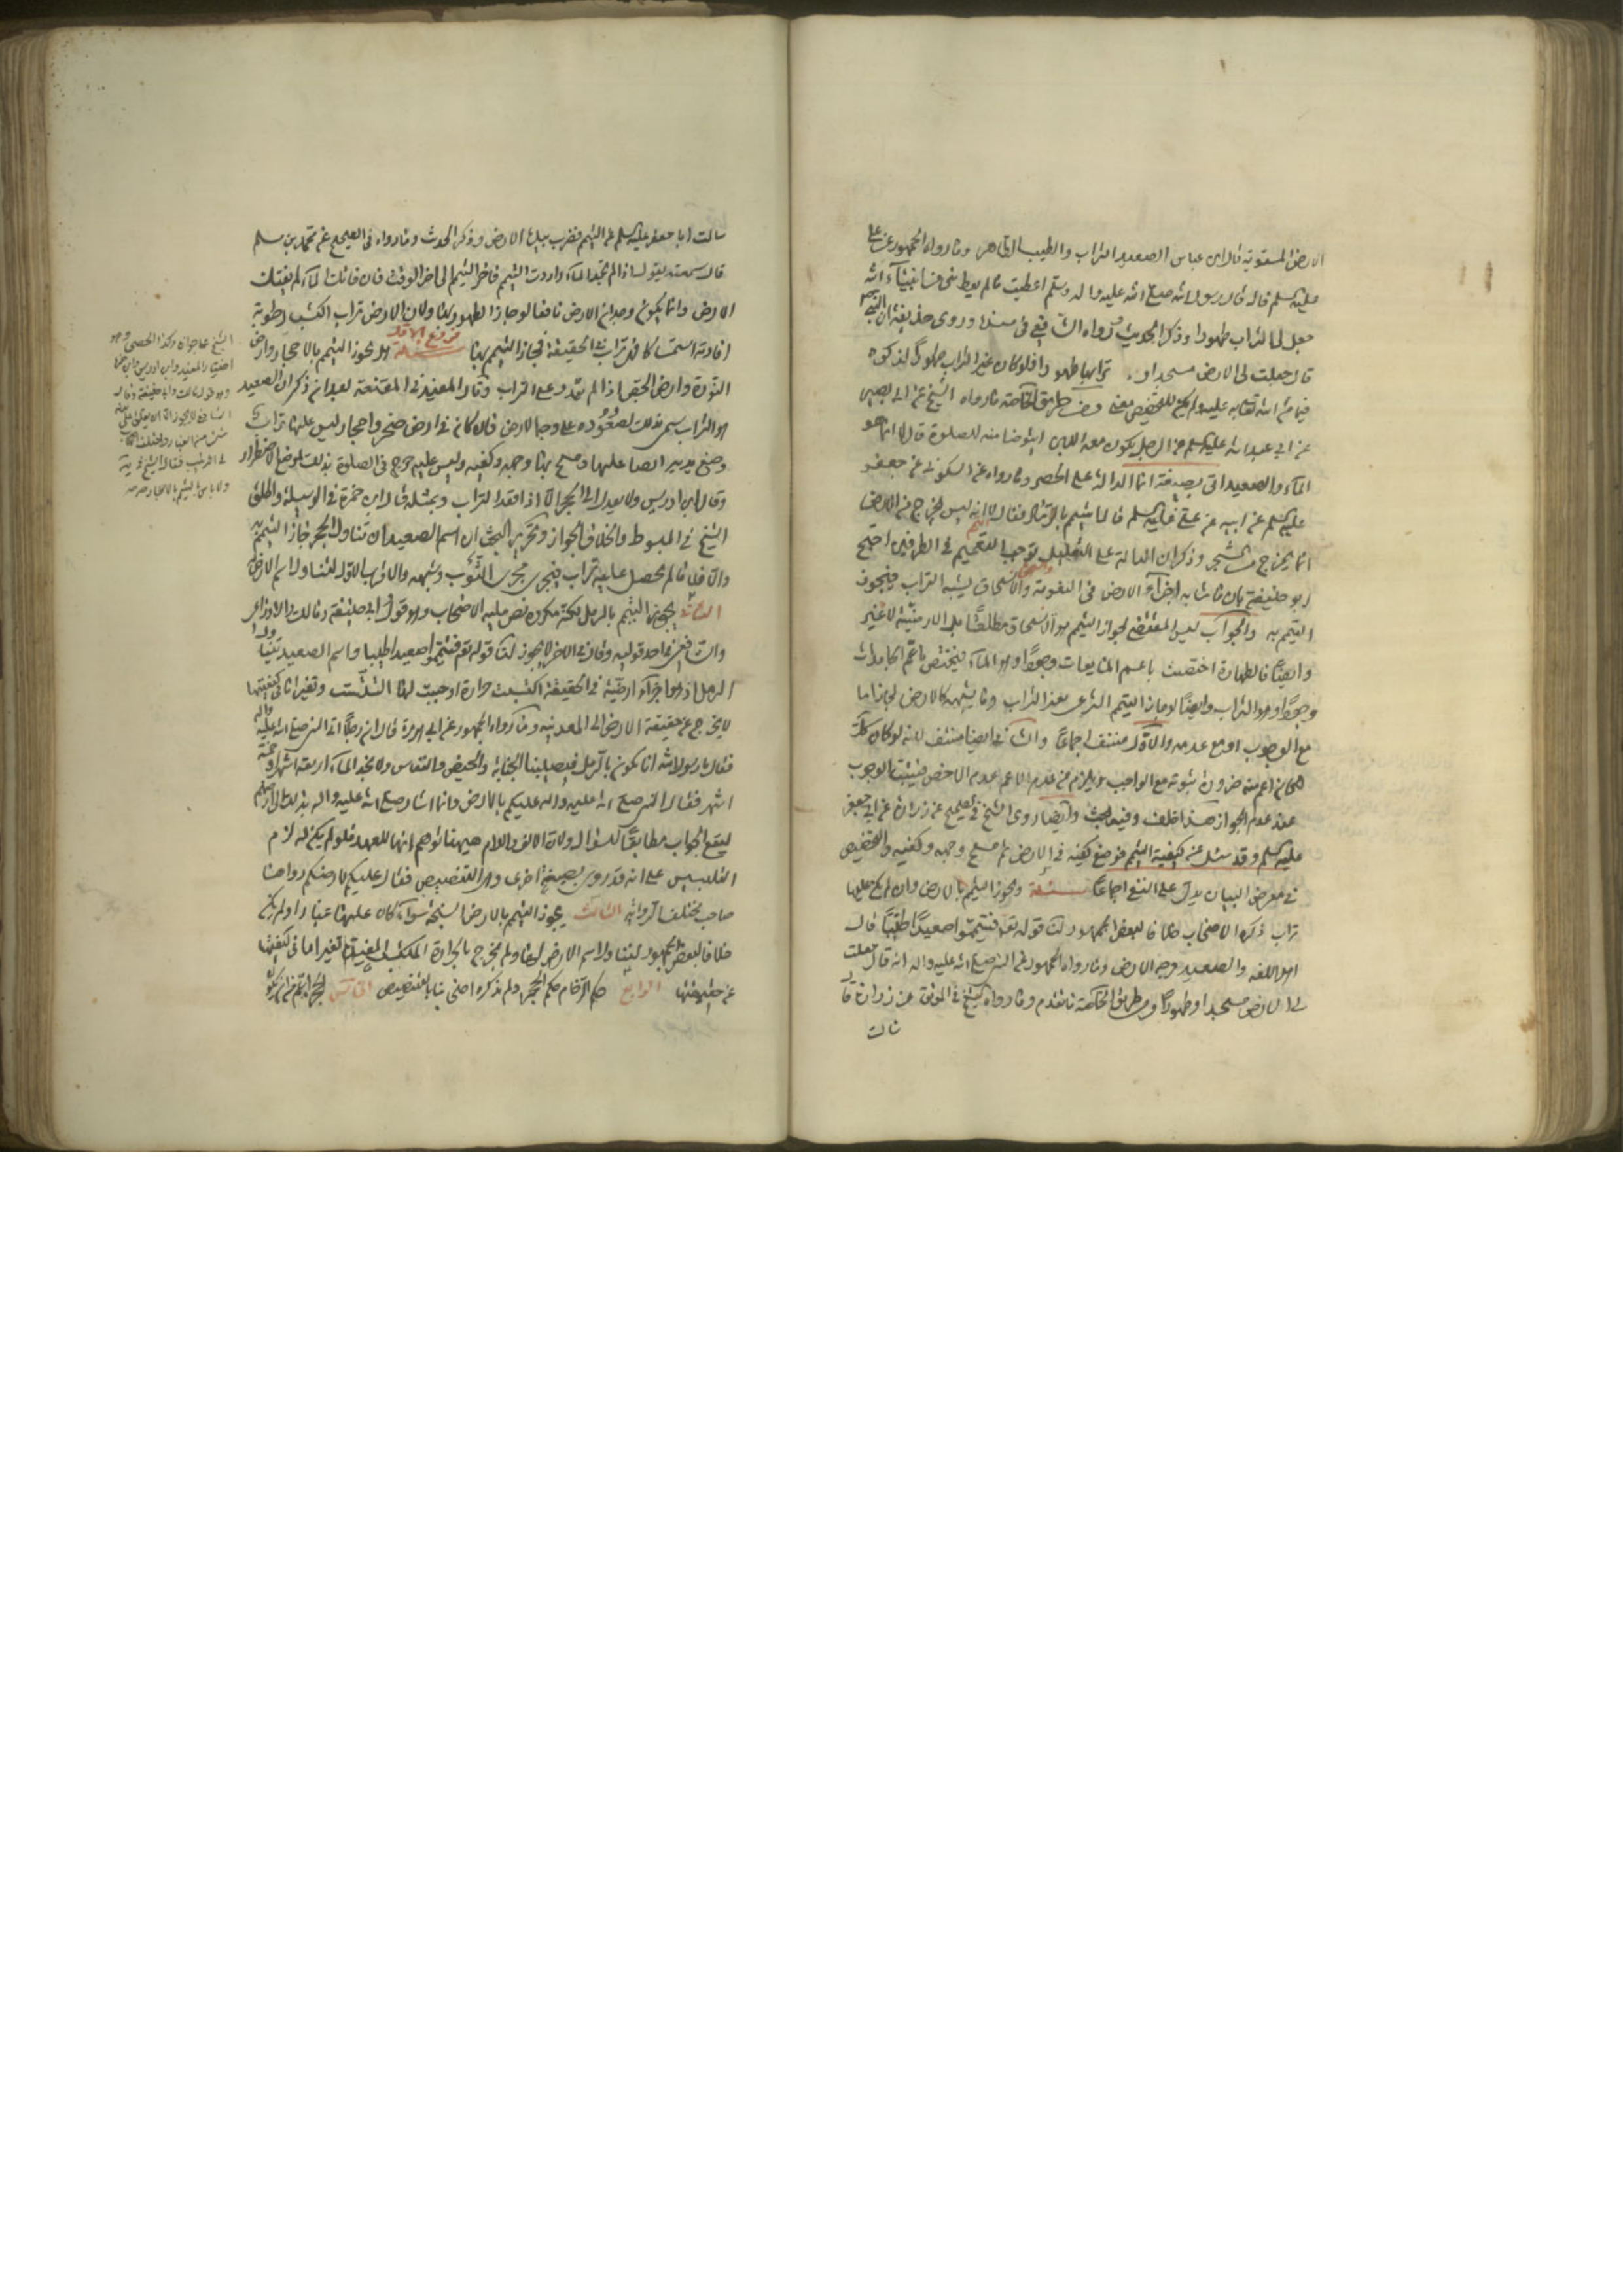 الارض المستوية قال ابن عباس الصعيد التراب والطيب الطاهر وما رواه الجمهور عن علي
عليه السلم قال قال رسول الله صلى الله عليه واله وسلم اعطيت ما لم يعط نبي من انبياء الله
جعل لي التراب طهورا وذكر الحديث رواه الشافعي في مسنده وروى حذيفة ان النبي
قال جعلت لي الارض مسجدا و ترابها طهورا فلو كان غير التراب طهورا لذكره
فيما من الله تعالى به عليه ولم يكن للتخصيص معنى ومن طريق الخاصة ما رواه الشيخ عن ابي بصير
عن ابي عبد الله عليه السلم عن الرجل يكون معه اللبن ايتوضا منه للصلوة قال لا انما هو
الماء والصعيد اتى بصيغة انما الدالة على الحصر وما رواه عن السكوني عن جعفر
عليه السلم عن ابيه عن علي عليه السلم قال ايتيمم بالرماد فقال لا انه ليس يخرج من الارض
انما يخرج من الشجر وذكر ان الدالة على التعليل توجب التعميم في الطرفين احتج
ابو حنيفة بان ما شابه اجزاء الارض في النعومة والانسحاق يشبه التراب فيجوز
التيمم به والجواب ليس المقتضي لجواز التيمم هو الانسحاق مطلقا بل الارضية لا غير
وايضا فالطهارة اختصت باعم المايعات وجودا وهو الماء فيختص باعم الجامدات
وجودا وهو التراب وايضا لو جاز التيمم الشرعي بغير التراب وما يشبهه كالارض لجاز اما
مع الوجوب او مع عدمه والاول منتف اجماعا والثاني ايضا منتف لانه لو كان كذلك
لكان اعم منه ضرورة ثبوته مع الواجب ويلزم من عدم الاعم عدم الاخص فيثبت الوجوب
عند عدم الجواز هذا خلف وفيه بحث وايضا روى الشيخ في الصحيح عن زرارة عن ابي جعفر
عليه السلم وقد سئل عن كيفية التيمم فوضع كفيه في الارض ثم مسح وجهه وكفيه والتخصيص
في معرض البيان يدل على النفي اجماعا مسئلة ويجوز التيمم بالارض وان لم يكن عليها
تراب ذكره الاصحاب خلافا لبعض الجمهور لنا قوله تعالى فتيمموا صعيدا طيبا قال
اهل اللغه والصعيد وجه الارض وما رواه الجمهور عن النبي صلى الله عليه واله انه قال جعلت
لي الارض مسجدا وطهورا ومن طريق الخاصة ما تقدم وما رواه الشيخ في الموثق عن زرارة قال
سالت
سالت ابا جعفر عليه السلم عن التيمم فضرب بيده الارض وذكر الحديث وما رواه في الصحيح عن محمد بن مسلم
قال سمعته يقول اذا لم تجد الماء واردت التيمم فاخر التيمم الى اخر الوقت فان فاتك الماء لم يفتك
الارض وانما يكون وجدان الارض نافعا لو جاز الطهور بها ولان الارض تراب اكتسب رطوبة
افادته استمساكا فهي تراب في الحقيقة فجاز التيمم بها فروع الاول مسئلة هل يجوز التيمم بالاحجار وارض
النورة وارض الجص اذا لم تقدر على التراب وقال المفيد في المقنعة بعد ان ذكر ان الصعيد
هو التراب سمي بذلك لصعوده على وجه الارض فان كان في ارض صخر واحجار ليس عليها تراب
وضع يديه ايضا عليها ومسح بهما وجهه وكفيه وليس عليه حرج في الصلوة بذلك لموضع الاضطرار
وقال ابن ادريس ولا يعدل الى الحجر الا اذا فقد التراب وبمثله قال ابن حمزة في الوسيلة واطلق
الشيخ في المبسوط والخلاف الجواز وتحرير البحث ان اسم الصعيد ان تناول الحجر جاز التيمم به
والا فلا ما لم يحصل عليه تراب فيجري مجرى الثوب وشبهه والاقرب الاول لتناول اسم الارض له
الثاني يجوز التيمم بالرمل لكنه مكروه نص عليه الاصحاب وهو قول ابي حنيفة ومالك والاوزاعي
والشافعي في احد قوليه وقال في الاخر لا يجوز لنا قوله تعالى فتيمموا صعيدا طيبا واسم الصعيد يتناول
الرمل اذ هو اجزاء ارضية في الحقيقة اكتسبت حرارة اوجبت لها التشتت وتغيرا ما في كيفيتها
لا يخرج عن حقيقة الارض الى المعدنية وما رواه الجمهور عن ابي هريرة قال ان رجلا اتى النبي صلى الله عليه واله
فقال يا رسول الله انا نكون بالرمل فيصيبنا الجنابة والحيض والنفاس ولا نجد الماء اربعة اشهر وخمسة
اشهر فقال النبي صلى الله عليه واله عليكم بالارض وانما اشار صلى الله عليه واله بذلك الى ارضهم
ليقع الجواب مطابقا للسؤال ولان الالف واللام هيهنا توهم انها للعهد فلو لم يكن له لزم
التلبيس على انه قد روي بصيغة اخرى وهي التنصيص فقال عليكم بارضكم رواهما
صاحب مختلف الرواية الثالث يجوز التيمم بالارض السبخة سواء كان عليها غبار او لم يكن
خلافا لبعض الجمهور لتناول اسم الارض لها ولم يخرج بالحرارة المكتسبة المفيدة تغيرا ما في كيفيتها
عن حقيقتها الرابع حكم الرخام حكم الحجر ولم يذكره اصحابنا بالتنصيص الخامس
الشيخ على جوازه وكذا الحصى وهو
اختيار المفيد وابن ادريس وابن حمزة
وهو قول مالك وابو حنيفة وقال